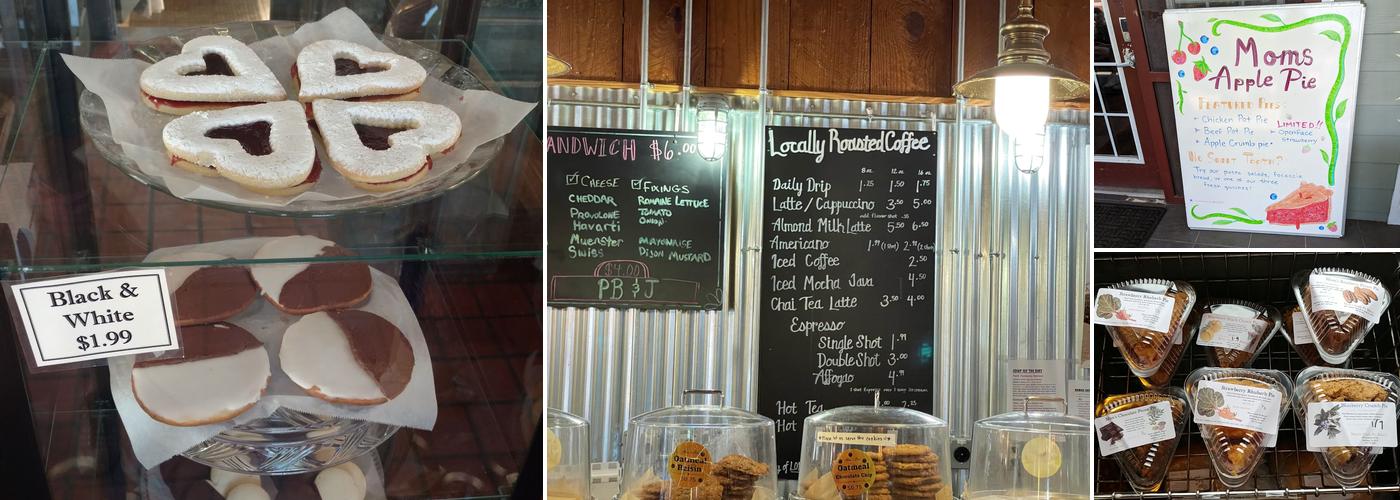 Black &
White
$1.99
ANDWICH $6.00
CHEESE
CHEDDAR
PROVOLONE
Havarti
Muenster
Swiss
FIXINGS
ROMAINE LETTUCE
TOMATO
ONION
MAYONAISE
DIJON MUSTARD
$4.00
PB & J
Locally Roasted Coffee
8 oz. 12 oz. 16 oz.
Daily Drip 1.25 1.50 1.75
Latte/Cappuccino 3.50 5.00
add flavor shot .55
Almond Milk Latte 5.50 6.50
Americano 1.99 (1 Shot) 2.99 (2 Shots)
Iced Coffee 2.50
Iced Mocha Java 4.50
Chai Tea Latte 3.50 4.00
Espresso
Single Shot 1.99
Double Shot 3.00
Affogato 4.99
Hot Tea
Hot
Oatmeal
Raisin
Please let us serve the cookies
Oatmeal
Chocolate Chip
Moms
Apple Pie
FEATURED PIES:
Chicken Pot Pie
Beef Pot Pie
Apple Crumb pie
LIMITED!!
Openface
Strawberry
No Sweet Tooth?
Try our potato salads, focaccia
bread, or one of our three
fresh quiches!
Strawberry Rhubarb Pie
Strawberry Rhubarb Pie
Blueberry Crumb Pie